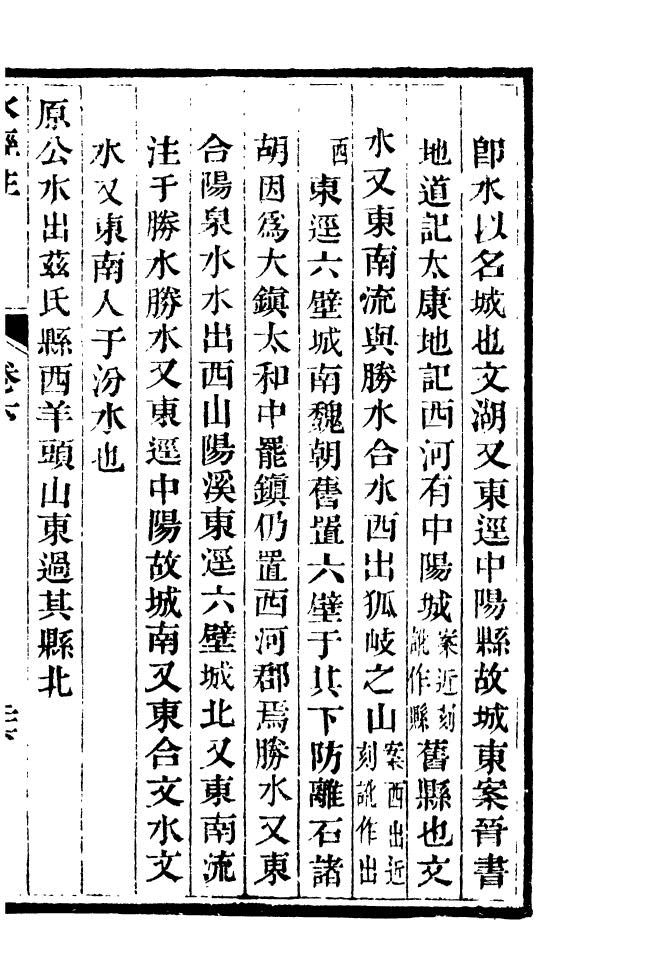 卽水以名城也文湖又東逕中陽縣故城東案晉書
地道記太康地記西河有中陽城案近刻訛作縣舊縣也文
水又東南流與勝水合水西出狐岐之山案西出近刻訛作出
西東逕六壁城南魏朝舊置六壁于其下防離石諸
胡因爲大鎮太和中罷鎮仍置西河郡焉勝水又東
合陽泉水水出西山陽溪東逕六壁城北又東南流
注于勝水勝水又東逕中陽故城南又東合文水文
水又東南入于汾水也
原公水出茲氏縣西羊頭山東過其縣北
水經注
卷六